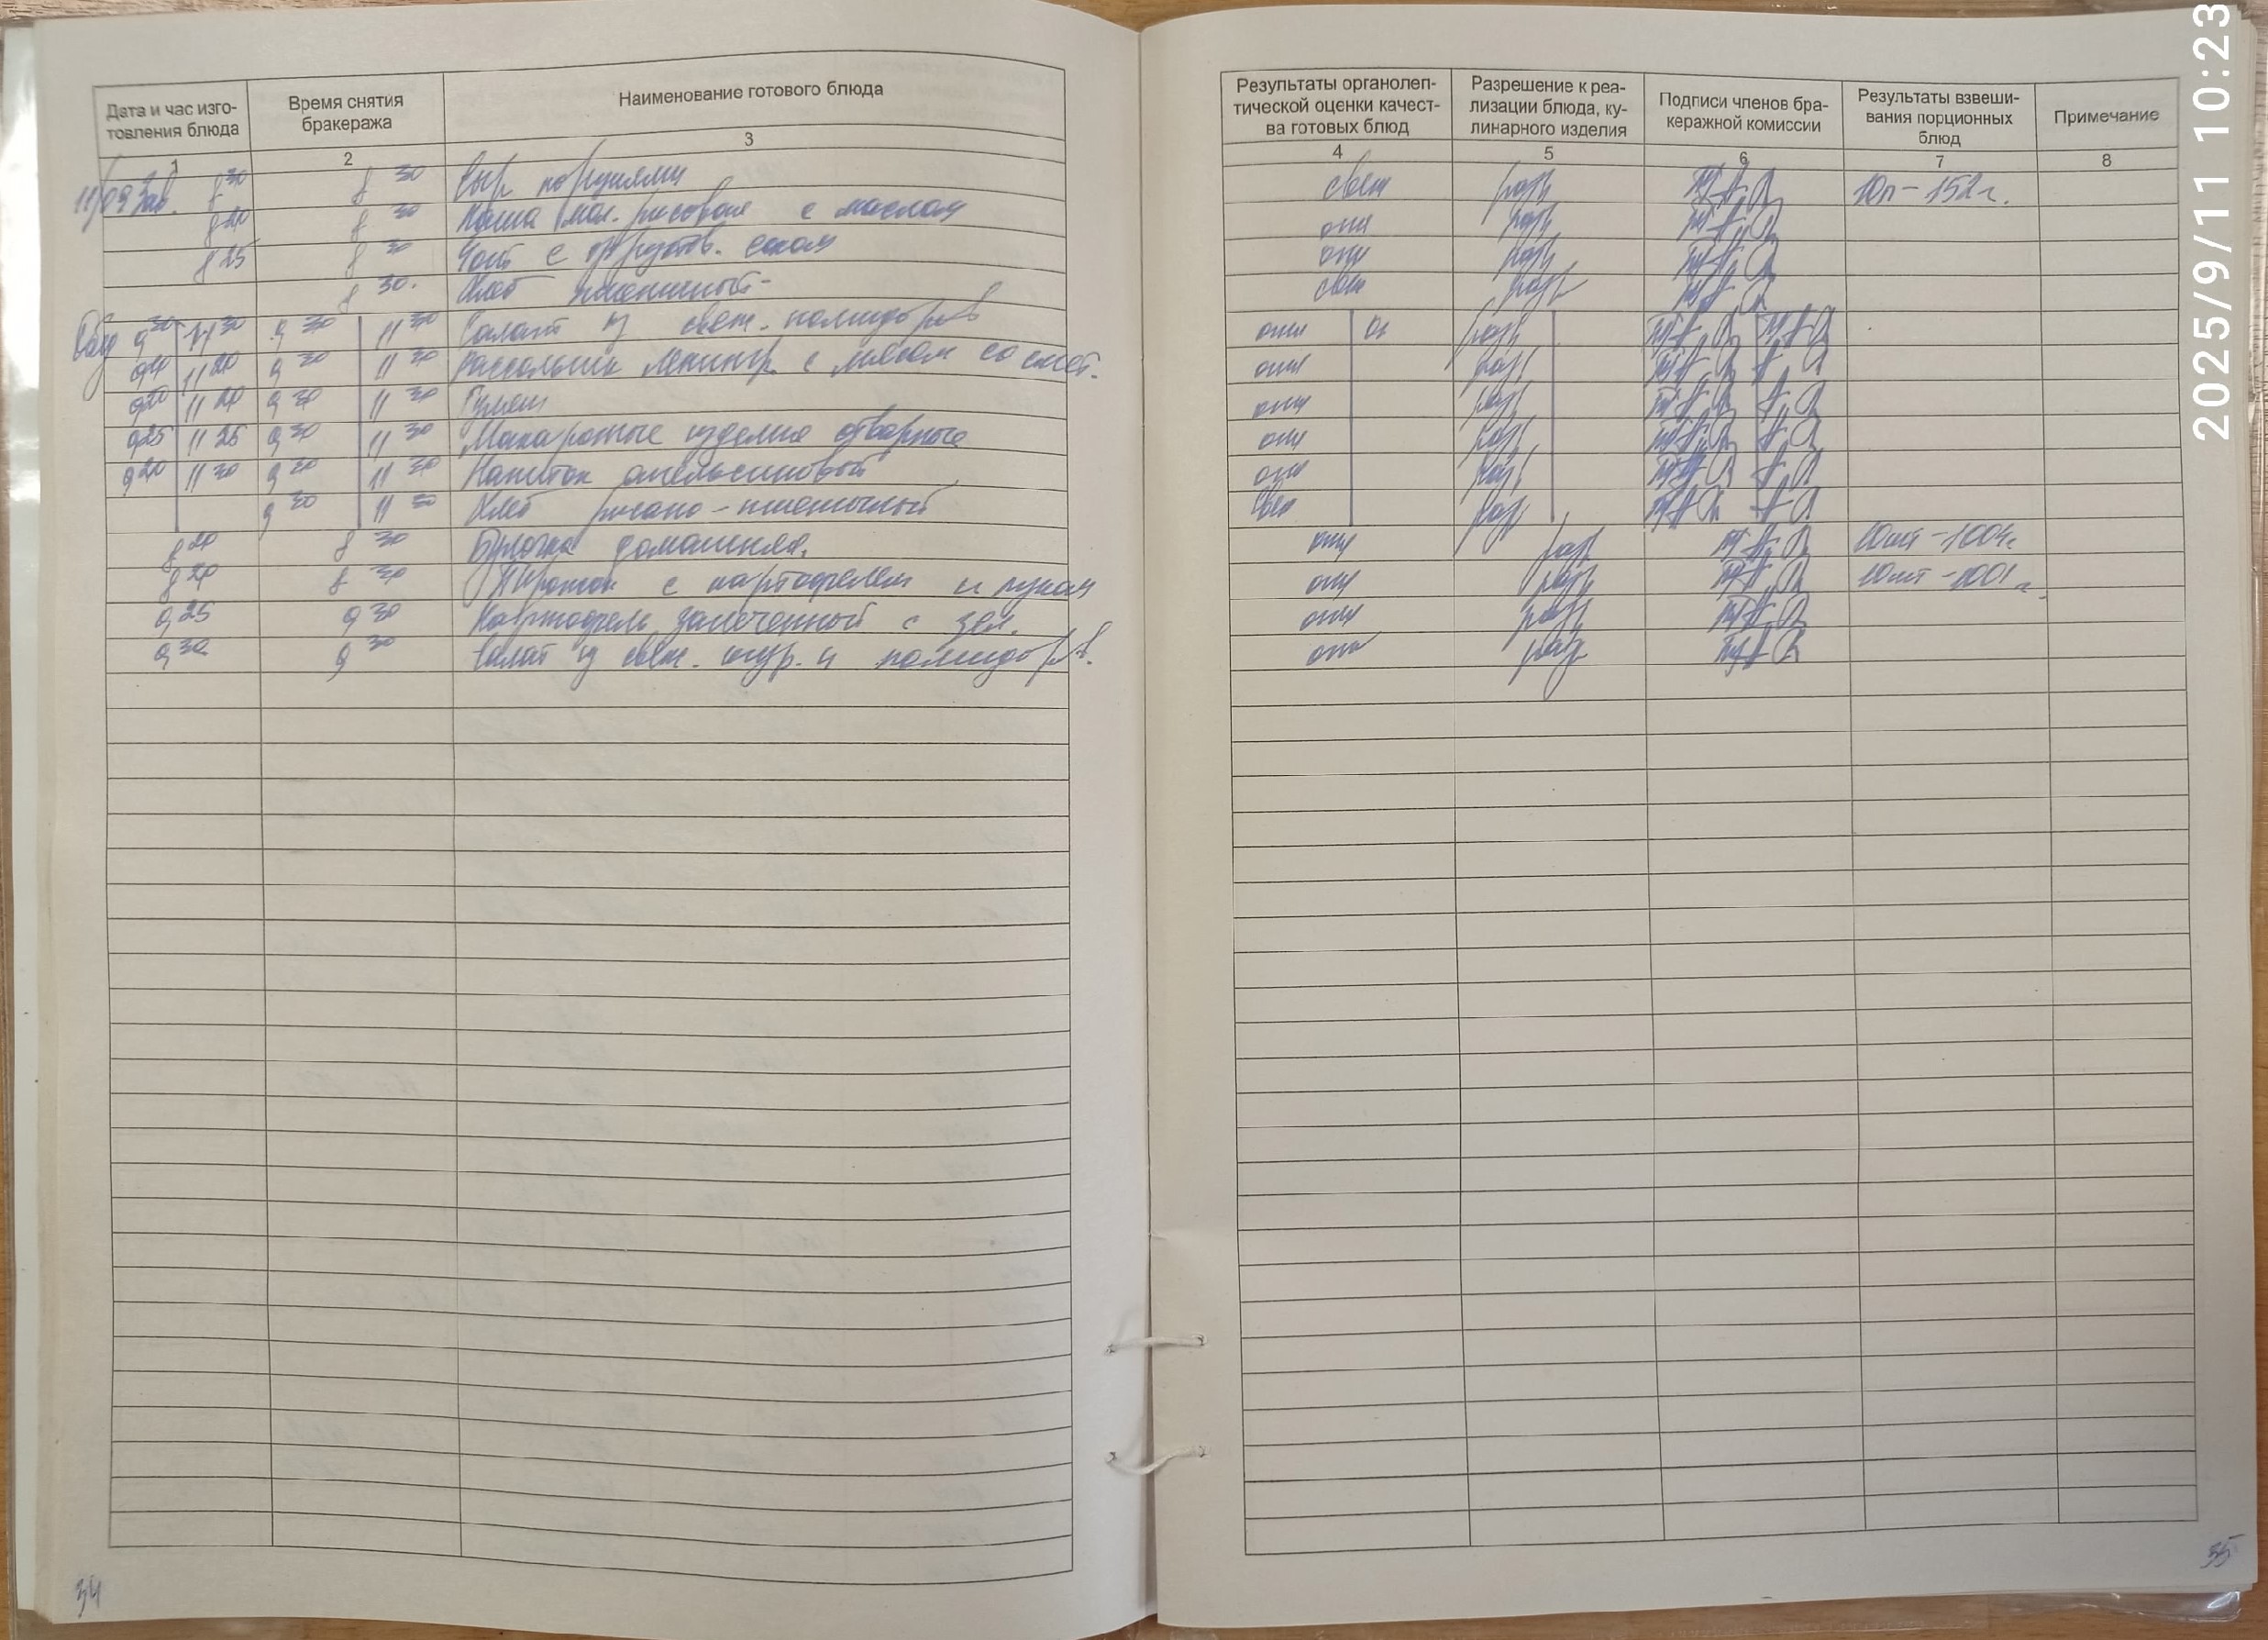 Дата и час изго-
товления блюда
Время снятия
бракеража
Наименование готового блюда
Результаты органолеп-
тической оценки качест-
ва готовых блюд
Разрешение к реа-
лизации блюда, ку-
линарного изделия
Подписи членов бра-
керажной комиссии
Результаты взвеши-
вания порционных
блюд
Примечание
1 2 3 4 5 6 7 8
11/09 Зав. 8 30 8 30 Сыр порциями свеж разр 10п - 152 г.
8 20 8 30 Каша мол. рисовая с маслом отл разр
8 25 8 30 Чай с фруктов. соком отл разр
8 30. Хлеб пшеничный свеж разр
Обед 9 30 11 30 9 30 11 30 Салат из свеж. помидоров отл разр
9 20 11 20 9 30 11 30 Рассольник Ленингр. с мясом со смет. отл разр
9 20 11 20 9 30 11 30 Гуляш отл разр
9 25 11 25 9 30 11 30 Макаронные изделия отварные отл разр
9 20 11 30 9 30 11 30 Напиток апельсиновый отл разр
9 30 11 30 Хлеб ржано-пшеничный свеж разр
8 20 8 30 Булочка домашняя. отл разр 10шт - 1004г
8 20 8 30 Пирожок с картофелем и луком отл разр 10шт - 1001 г.
9 25 9 30 Картофель запеченный с зел. отл разр
9 30 9 30 Салат из свеж. огур. и помидоров. отл разр
34
35
2025/9/11 10:23